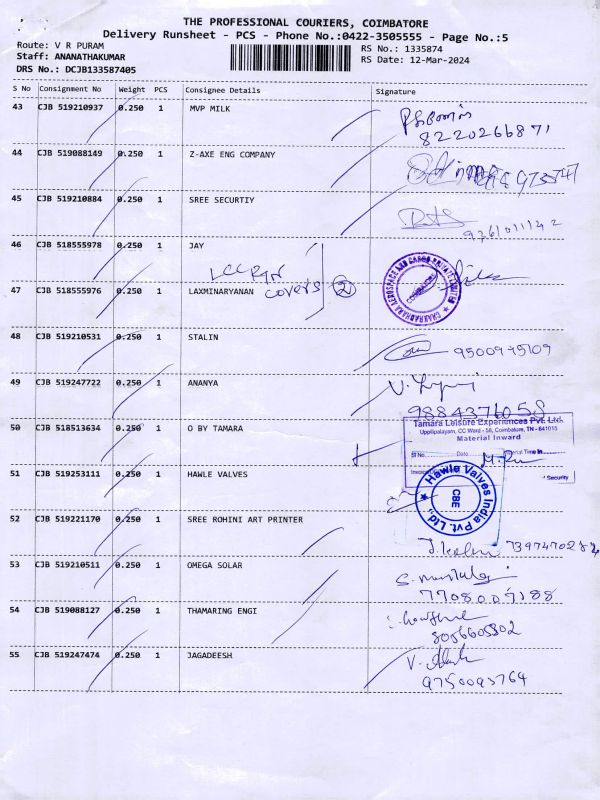 THE PROFESSIONAL COURIERS, COIMBATORE
Delivery Runsheet - PCS - Phone No.:0422-3505555 - Page No.:5
Route: V R PURAM
RS No.: 1335874
Staff: ANANATHAKUMAR
RS Date: 12-Mar-2024
DRS No.: DCJB133587405
S No Consignment No Weight PCS Consignee Details Signature
43 CJB 519210937 0.250 1 MVP MILK
8220266871
44 CJB 519088149 0.250 1 Z-AXE ENG COMPANY
45 CJB 519210884 0.250 1 SREE SECURTIY
46 CJB 518555978 0.250 1 JAY
covers 2
47 CJB 518555976 0.250 1 LAXMINARYANAN
48 CJB 519210531 0.250 1 STALIN
49 CJB 519247722 0.250 1 ANANYA
9884376058
50 CJB 518513634 0.250 1 O BY TAMARA
Tamara Leisure Experiences Pvt. Ltd.
Uppilipalayam, CC Word - 58, Coimbatore, TN - 641015
Material Inward
Sl No. Date Material Time In
Security
51 CJB 519253111 0.250 1 HAWLE VALVES
Hawle Valves India Pvt. Ltd.,
CBE
52 CJB 519221170 0.250 1 SREE ROHINI ART PRINTER
53 CJB 519210511 0.250 1 OMEGA SOLAR
54 CJB 519088127 0.250 1 THAMARING ENGI
55 CJB 519247474 0.250 1 JAGADEESH
9750093764